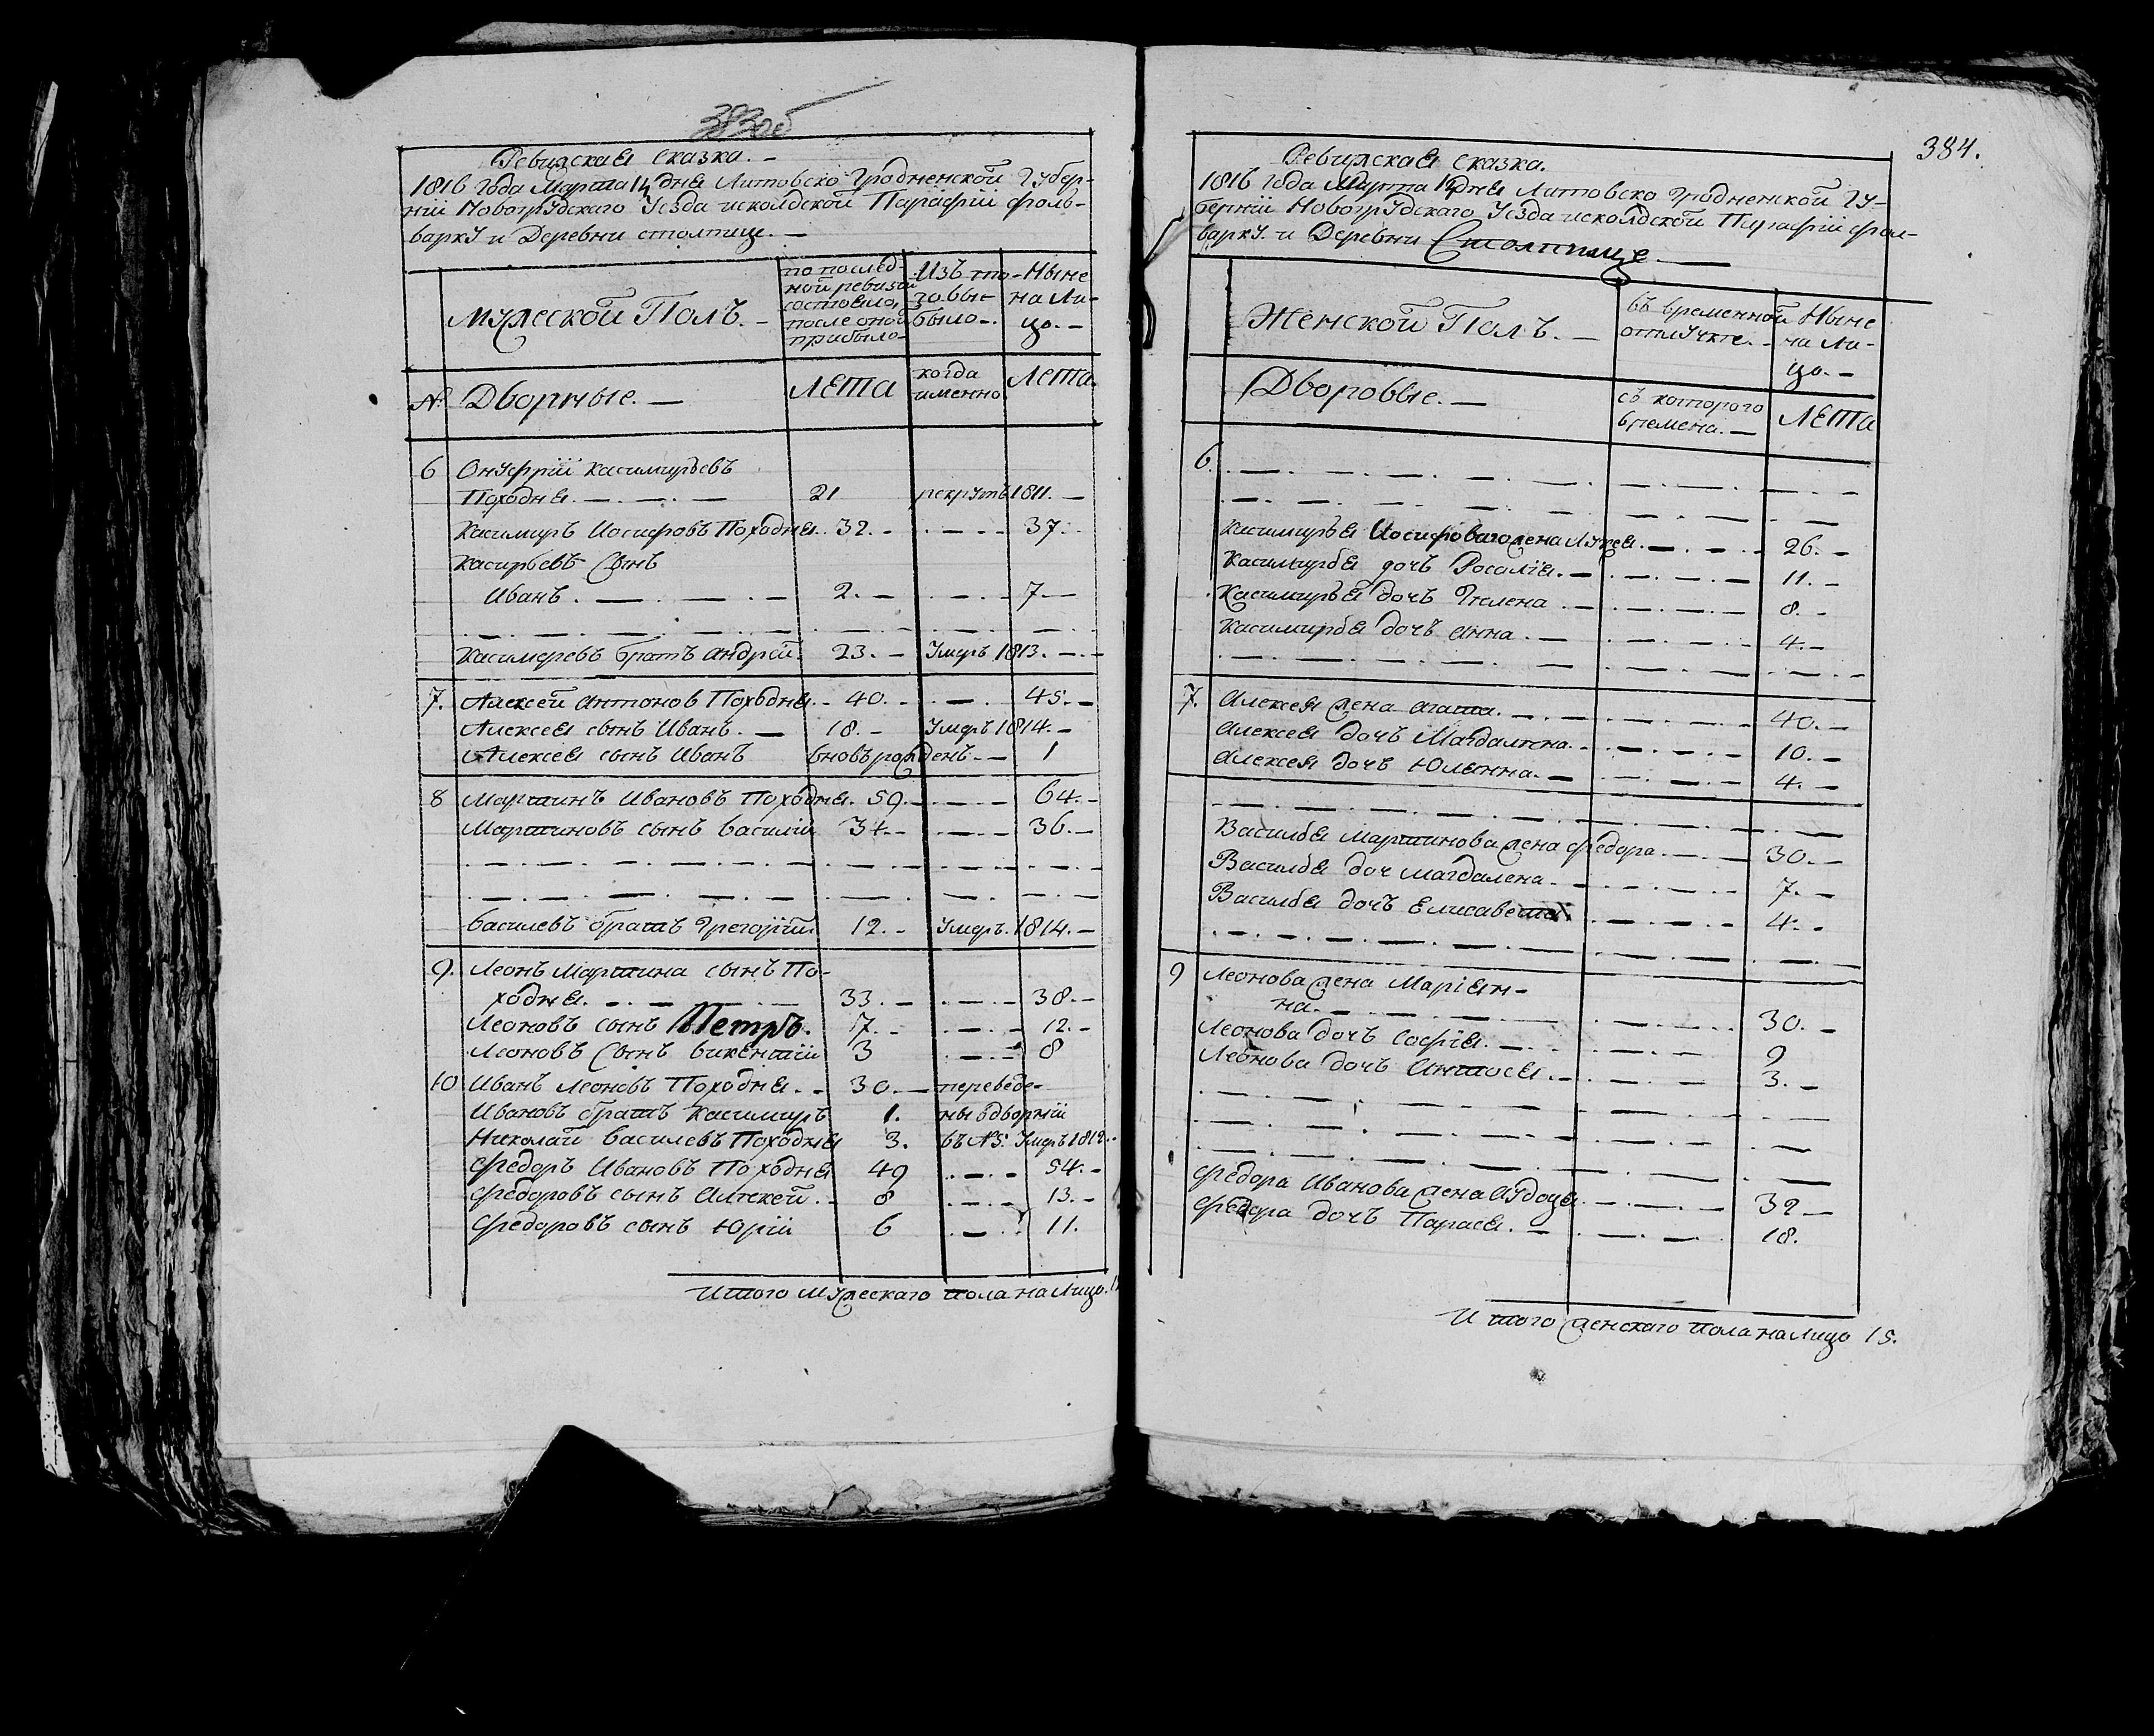 383об
Ревизская сказка. -
1816 года Марта 14 дня Литовско Гродненской Губер-
нии Новогрудскаго Уезда исколдской Парафіи фоль-
варку и Деревни столпище. —
Мужеской Полъ. -
по послед-
ной ревизіи
состояло,
после оной
прибыло-
Изъ то-
го вы-
было-.
Ныне
на Ли-
цо. -
№ Дворные. —
Лета
когда
именно
Лета.
6 Онуфрій касимировъ
Походня. —. —. — 21 рекрутъ 1811. —
Касимиръ Иосифовъ Походня. 32. - . - . - 37. -
Касирьевъ Сынъ
Иванъ . — . — . — 2. - . - . - 7. —
Касимеревъ братъ андрей. 23. - Умеръ 1813. - . -
7. Алексей антонов Походня. - 40. - . — . 45. -
Алексея сынъ Иванъ. — 18. - Умеръ 1814. -
Алексея сынъ Иванъ вновърожденъ. — 1
8 Мартинъ Ивановъ Походня. 59. - . - . - 64. -
Мартиновъ сынъ василій 34. - . - . - 36. -
василевъ братъ Грегорій 12. - Умеръ. 1814. -
9. Леонъ Мартина сынъ По-
ходня. - . — . — 33. - . - . - 38. -
Леоновъ сынъ Петръ. 7. - . - . - 12. -
Леоновъ Сынъ викентій 3 . - . - 8
10 Иванъ Леоновъ Походня. - 30. — переведе-
Ивановъ братъ Касимиръ 1. ны вдворній
Николай василевъ Походня 3. въ №5: Умеръ 1812. -
Федоръ Ивановъ Походня 49 . - . - 54. -
Федоровъ сынъ Алекей. - 8 . - . - 13. -
Федоровъ сынъ Юрій 6 . - . 11.
Итого мужескаго пола на Лицо.
384.
Ревизская сказка.
1816 года Марта 14 дня Литовско Гродненской Гу-
берніи Новогрудскаго Уезда исколдской Парафіи фол-
варку. и Деревни Столпище —
Женской Полъ. —
въ временной
отлучке. -
Ныне
на Ли-
цо. -
Дворовые. —
съ которого
времена. —
Лета
6.
Касимирья Иосифоваго жена Луцея. — . - . - 26. -
Касимирья дочъ Росалія. — . - . - 11. -
Касимирья дочъ Гелена . - . - . - 8. -
Касимирья дочъ анна . — . - . - 4. -
7. Алексея жена агата. — . - . - 40. -
Алексея дочъ Магдалена. - . - . - 10. -
Алексея дочъ Юлянна. — . - . - 4. -
Василья мартинова жена федора. — . - 30. -
Василья доч магдалена. - . - . - 7. -
Василья дочъ Елисавета. . - . - 4. -
9 Леонова жена Маріян-
на. - . - . - 30. -
Леонова дочъ Софія. — . - . - 9
Леонова дочъ Антося. - . - . - 3. -
Федора Иванова жена Аудоця. - . - . - 32 —
Федора дочъ Парася. — . - . - 18.
Итого женскаго пола на Лицо 15.